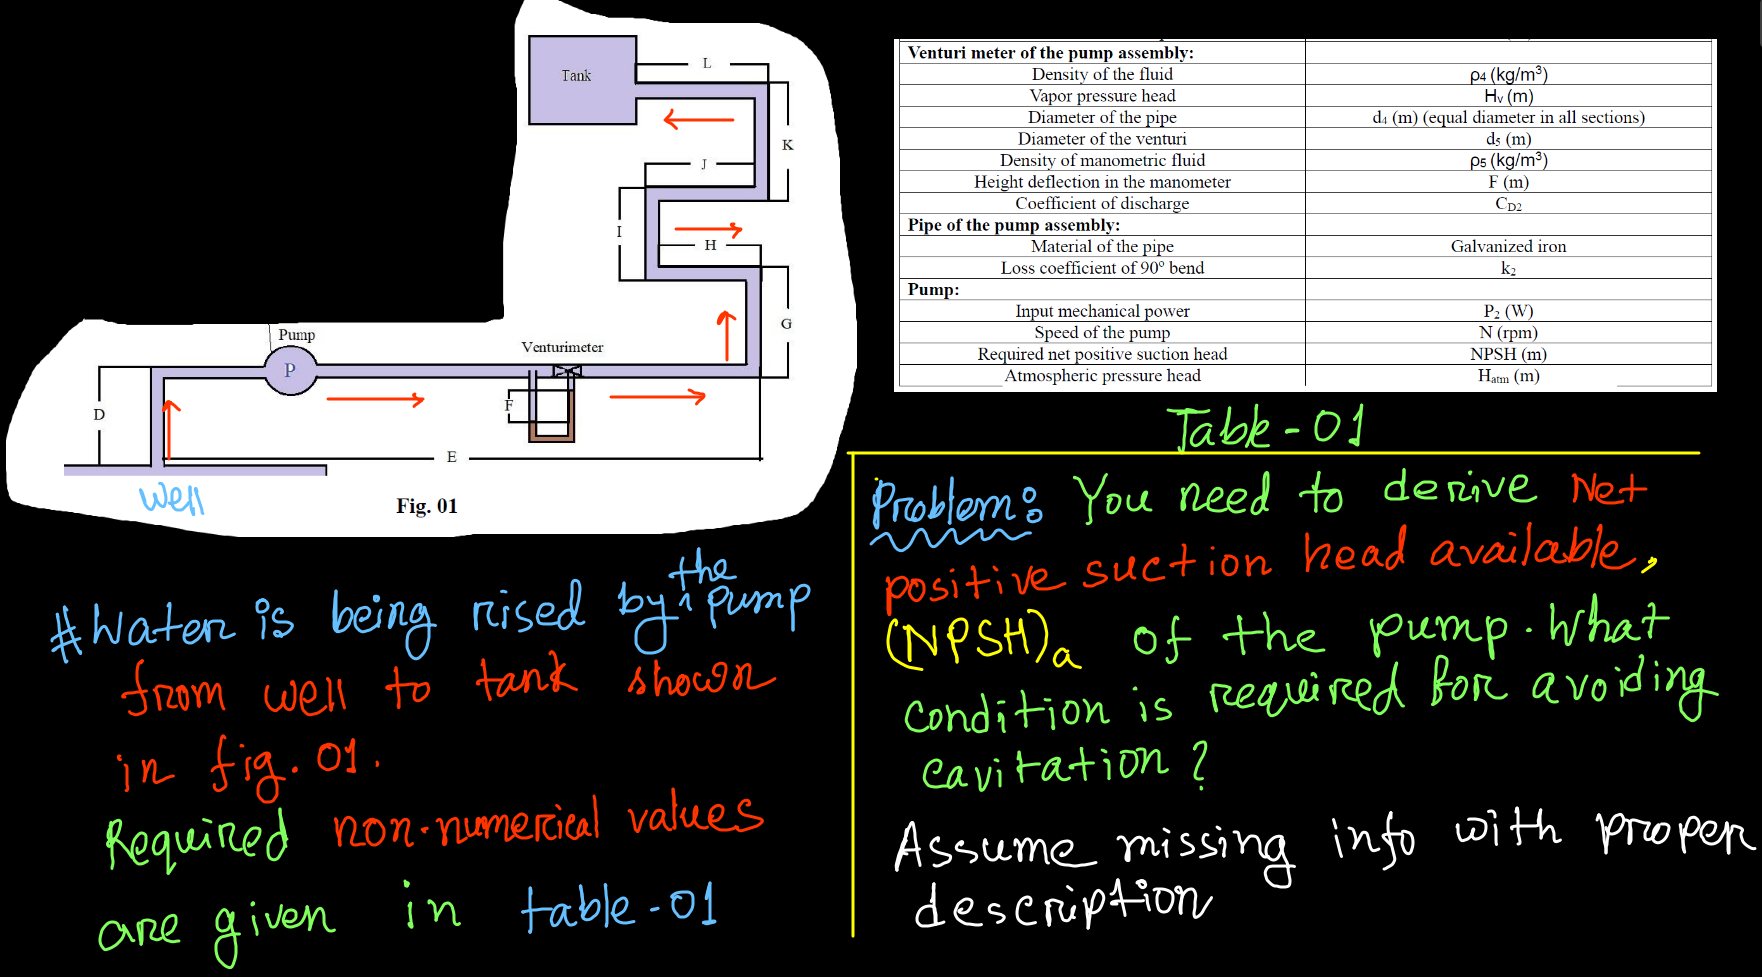 Tank
L
K
J
I
H
G
Pump
P
Venturimeter
D
F
E
Well
Fig. 01
Venturi meter of the pump assembly:
Density of the fluid ρ4 (kg/m³)
Vapor pressure head Hv (m)
Diameter of the pipe d4 (m) (equal diameter in all sections)
Diameter of the venturi d5 (m)
Density of manometric fluid ρ5 (kg/m³)
Height deflection in the manometer F (m)
Coefficient of discharge CD2
Pipe of the pump assembly:
Material of the pipe Galvanized iron
Loss coefficient of 90° bend k2
Pump:
Input mechanical power P2 (W)
Speed of the pump N (rpm)
Required net positive suction head NPSH (m)
Atmospheric pressure head Hatm (m)
Table-01
# Water is being rised by the pump
from well to tank shown
in fig. 01.
Required non-numerical values
are given in table-01
Problem: You need to derive Net
positive suction head available,
(NPSH)a of the pump. What
condition is required for avoiding
cavitation?
Assume missing info with proper
description